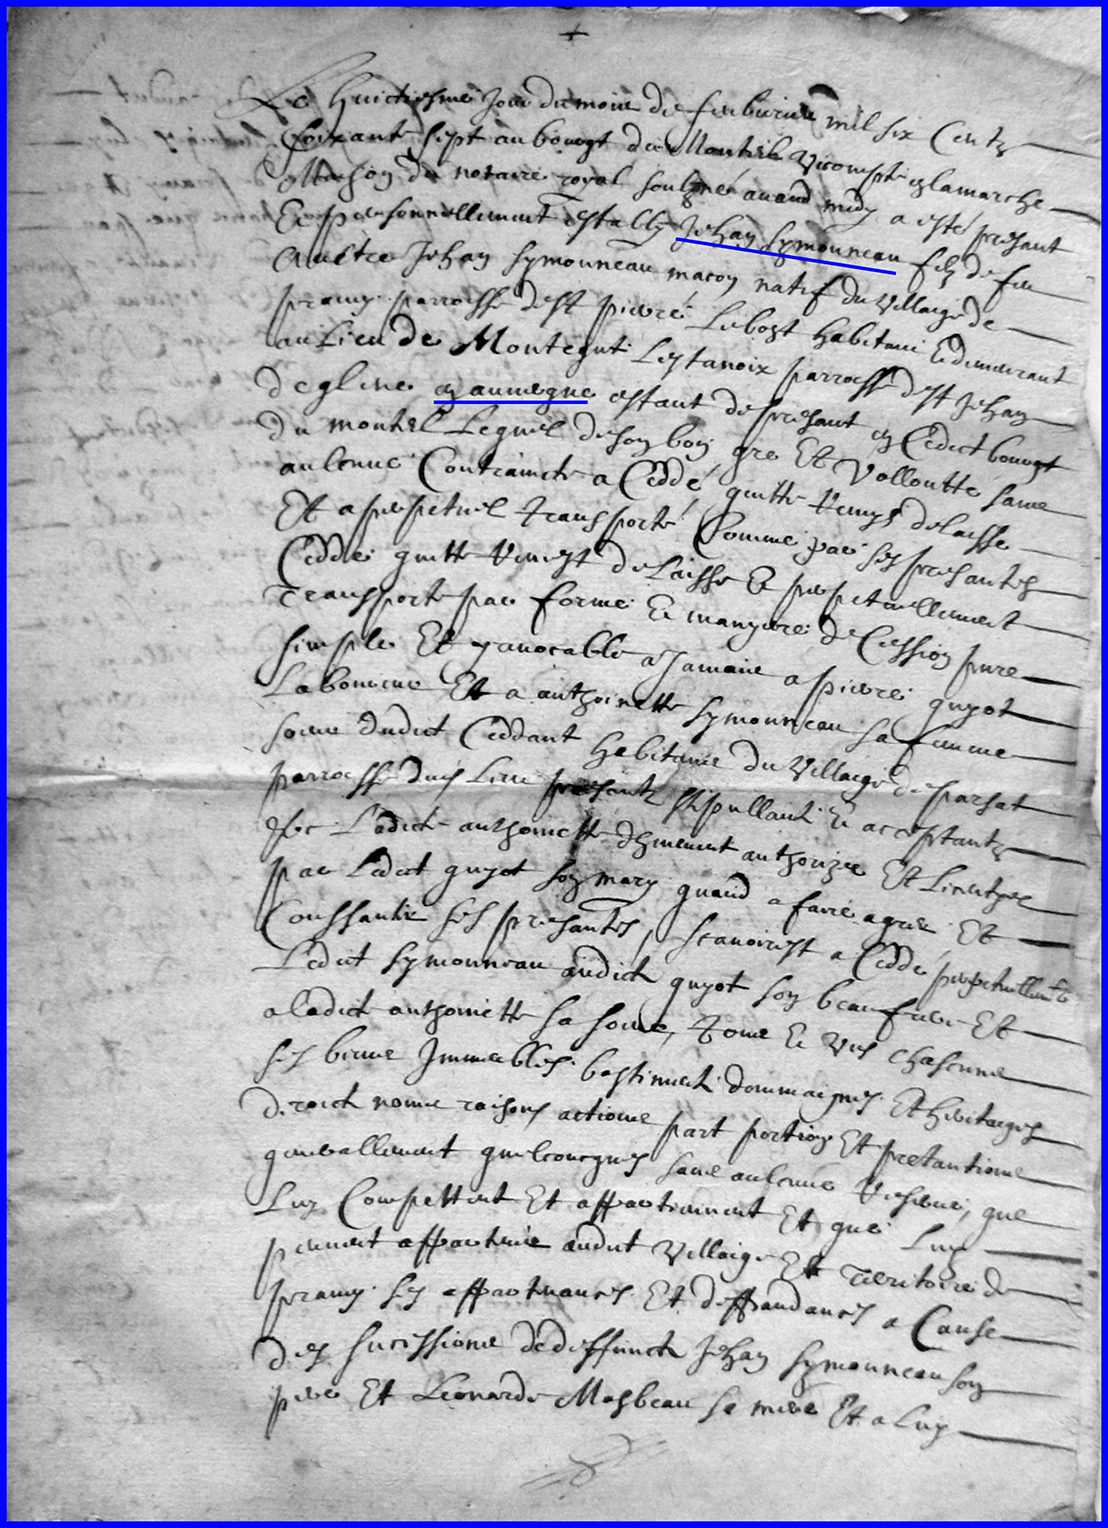 Le huictiesme Jour du mois de febvrier mil six Centz
Soixante sept au bourgt du Monteil Vicompte en lamarche
Maison du notaire royal soulzné avand midy a esté presant
Et personnellement estably Jehan Symonneau filz de feu
Aultre Jehan Symonneau macon natif du Village de
pramy parroisse de st pierre Lebost habitant Et demeurant
au Lieu de Montegut parroisse de st Jehan
deglene en auvergne estant de presant en Cedict bourgt
du montel Lequel de son bon gre Et Vollontte sans
aulcune Contraincte a Ceddé quitte delaisse
Et a perpetuel transporté Comme par ses presantes
Cedde quitte delaisse Et perpetuellement
Transporte par forme Et manyere de Cession pure
simple Et yrauocable a Jamais a pierre guyot
Laboureur Et a anthoinette Symonneau sa femme
soeur dudict Ceddant habitans du Village de parsat
parroisse dud Lieu presantz stipullant Et acceptantz
Ladicte anthoinette dhuement authorizee Et
par Ledict guyot son mary quand a faire agreer Et
Consantir ses presantes, scauoir est a Cedde perpetuellemt
Ledict Symonneau audict guyot son beau frere Et
a ladict anthoinette sa soeur, tous Et Uns chascuns
ses biens Immeubles bastiments dommaignes Et heritaiges
droictz noms raisons actions part portion Et pretantions
generallement quelconques sans aulcune reserue, que
Luy Compettent Et appartienent Et que Luy
peuuent appartenir audict Village Et Territoire de
pramy ses appartenances Et deppandances a Cause
des sucessions de deffunct Jehan Symonneau son
pere Et Leonarde Masbeau sa mere Et a Luy